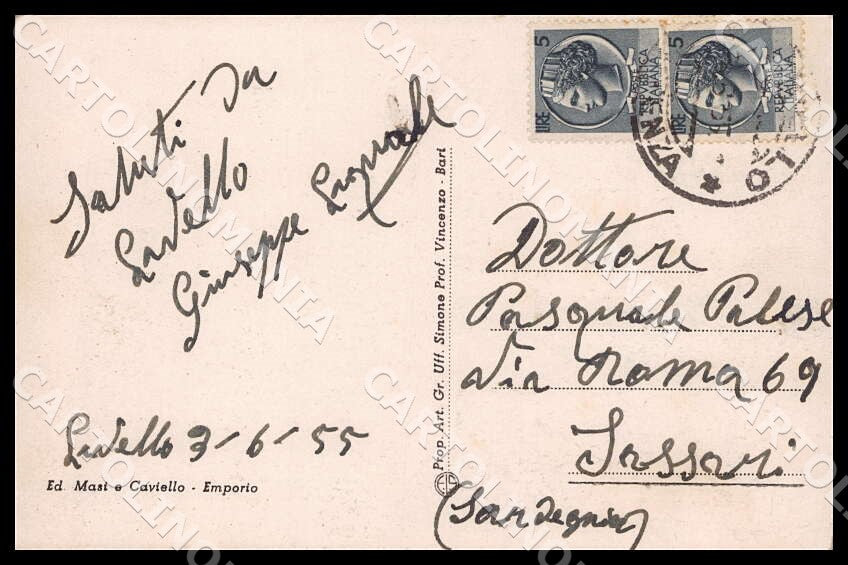 Saluti da
Lavello
Giuseppe
Lavello 3-6-55
Ed. Masi e Caviello - Emporio
Prop. Art. Gr. Uff. Simone Prof. Vincenzo - Bari
5
LIRE
REPVBBLICA
ITALIANA
5
LIRE
REPVBBLICA
ITALIANA
Dottore
Pasquale Palese
Via Roma 69
Sassari
(Sardegna)
CARTOLINOMANIA